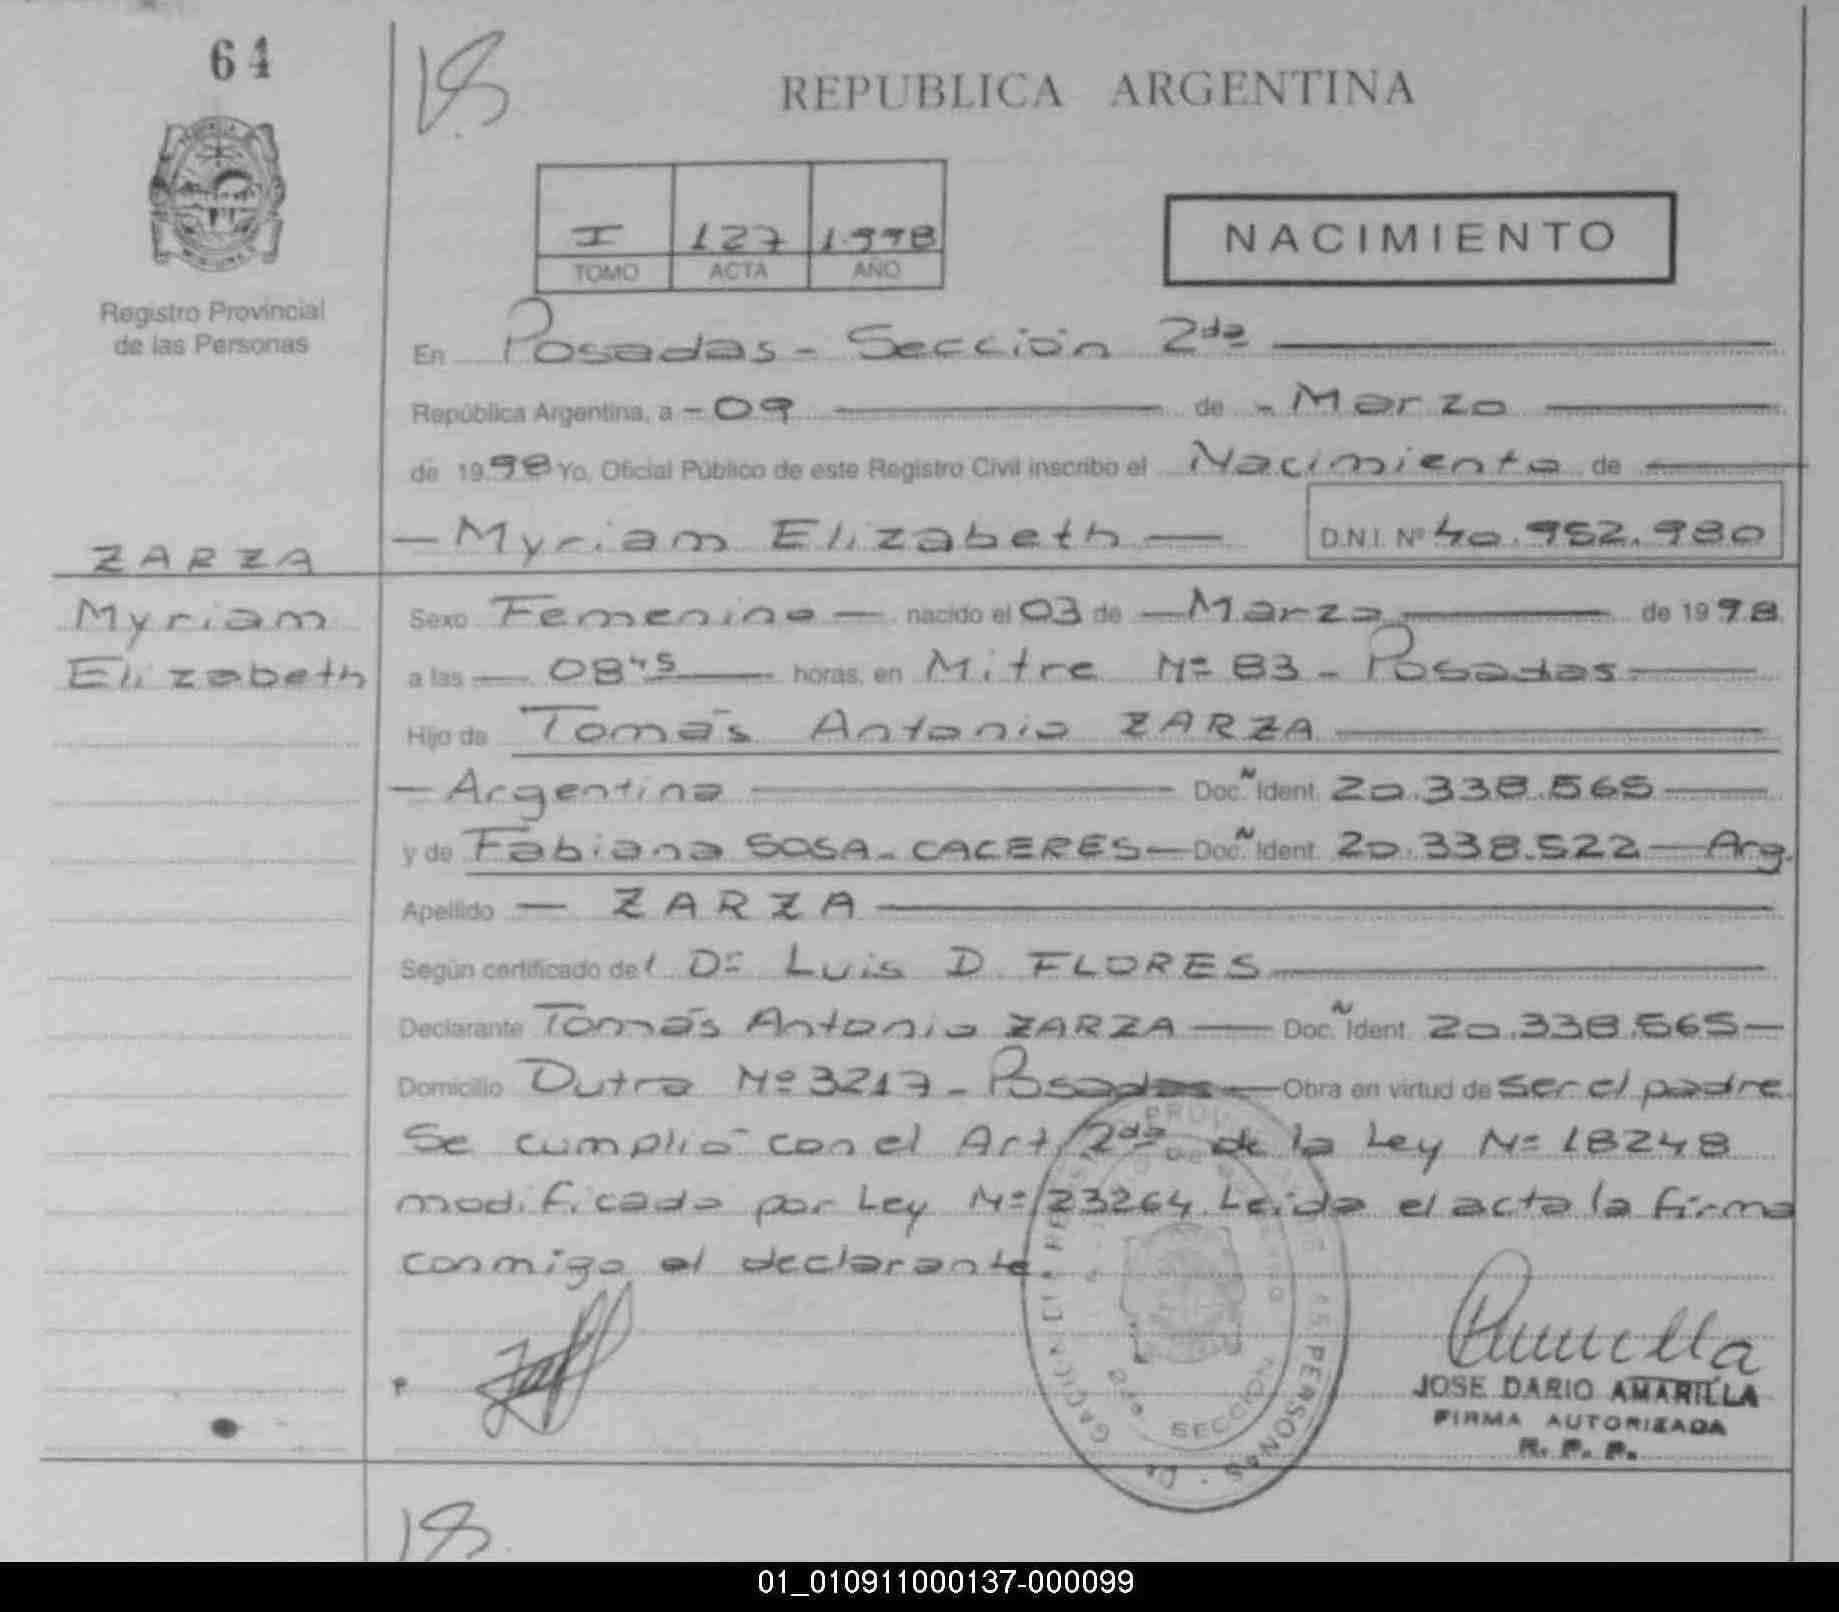 64
REPUBLICA ARGENTINA
I 127 1998
TOMO ACTA AÑO
NACIMIENTO
Registro Provincial
de las Personas
En Posadas - Sección 2da
República Argentina, a - 09 de - Marzo
de 1998 Yo, Oficial Público de este Registro Civil inscribo el Nacimiento de
ZARZA
Myriam
Elizabeth
- Myriam Elizabeth - D.N.I. Nº 40.952.980
Sexo Femenino - nacido el 03 de - Marzo de 1998
a las - 08 45 - horas, en Mitre Nº 83 - Posadas
Hijo de Tomás Antonio ZARZA
- Argentina Doc. Ñ Ident. 20.338.565
y de Fabiana SOSA - CACERES - Doc. Ñ Ident. 20.338.522 - Arg.
Apellido - ZARZA
Según certificado del Dr Luis D. FLORES
Declarante Tomás Antonio ZARZA - Doc. Ñ Ident. 20.338.565 -
Domicilio Dutra Nº 3217 - Posadas - Obra en virtud de ser el padre.
Se cumplió con el Art 2da de la Ley Nº 18248
modificado por Ley Nº 23264. Leída el acta la firma
conmigo el declarante.
2da SECCION
PERSONAS
JOSE DARIO AMARILLA
FIRMA AUTORIZADA
R. P. P.
01_010911000137-000099